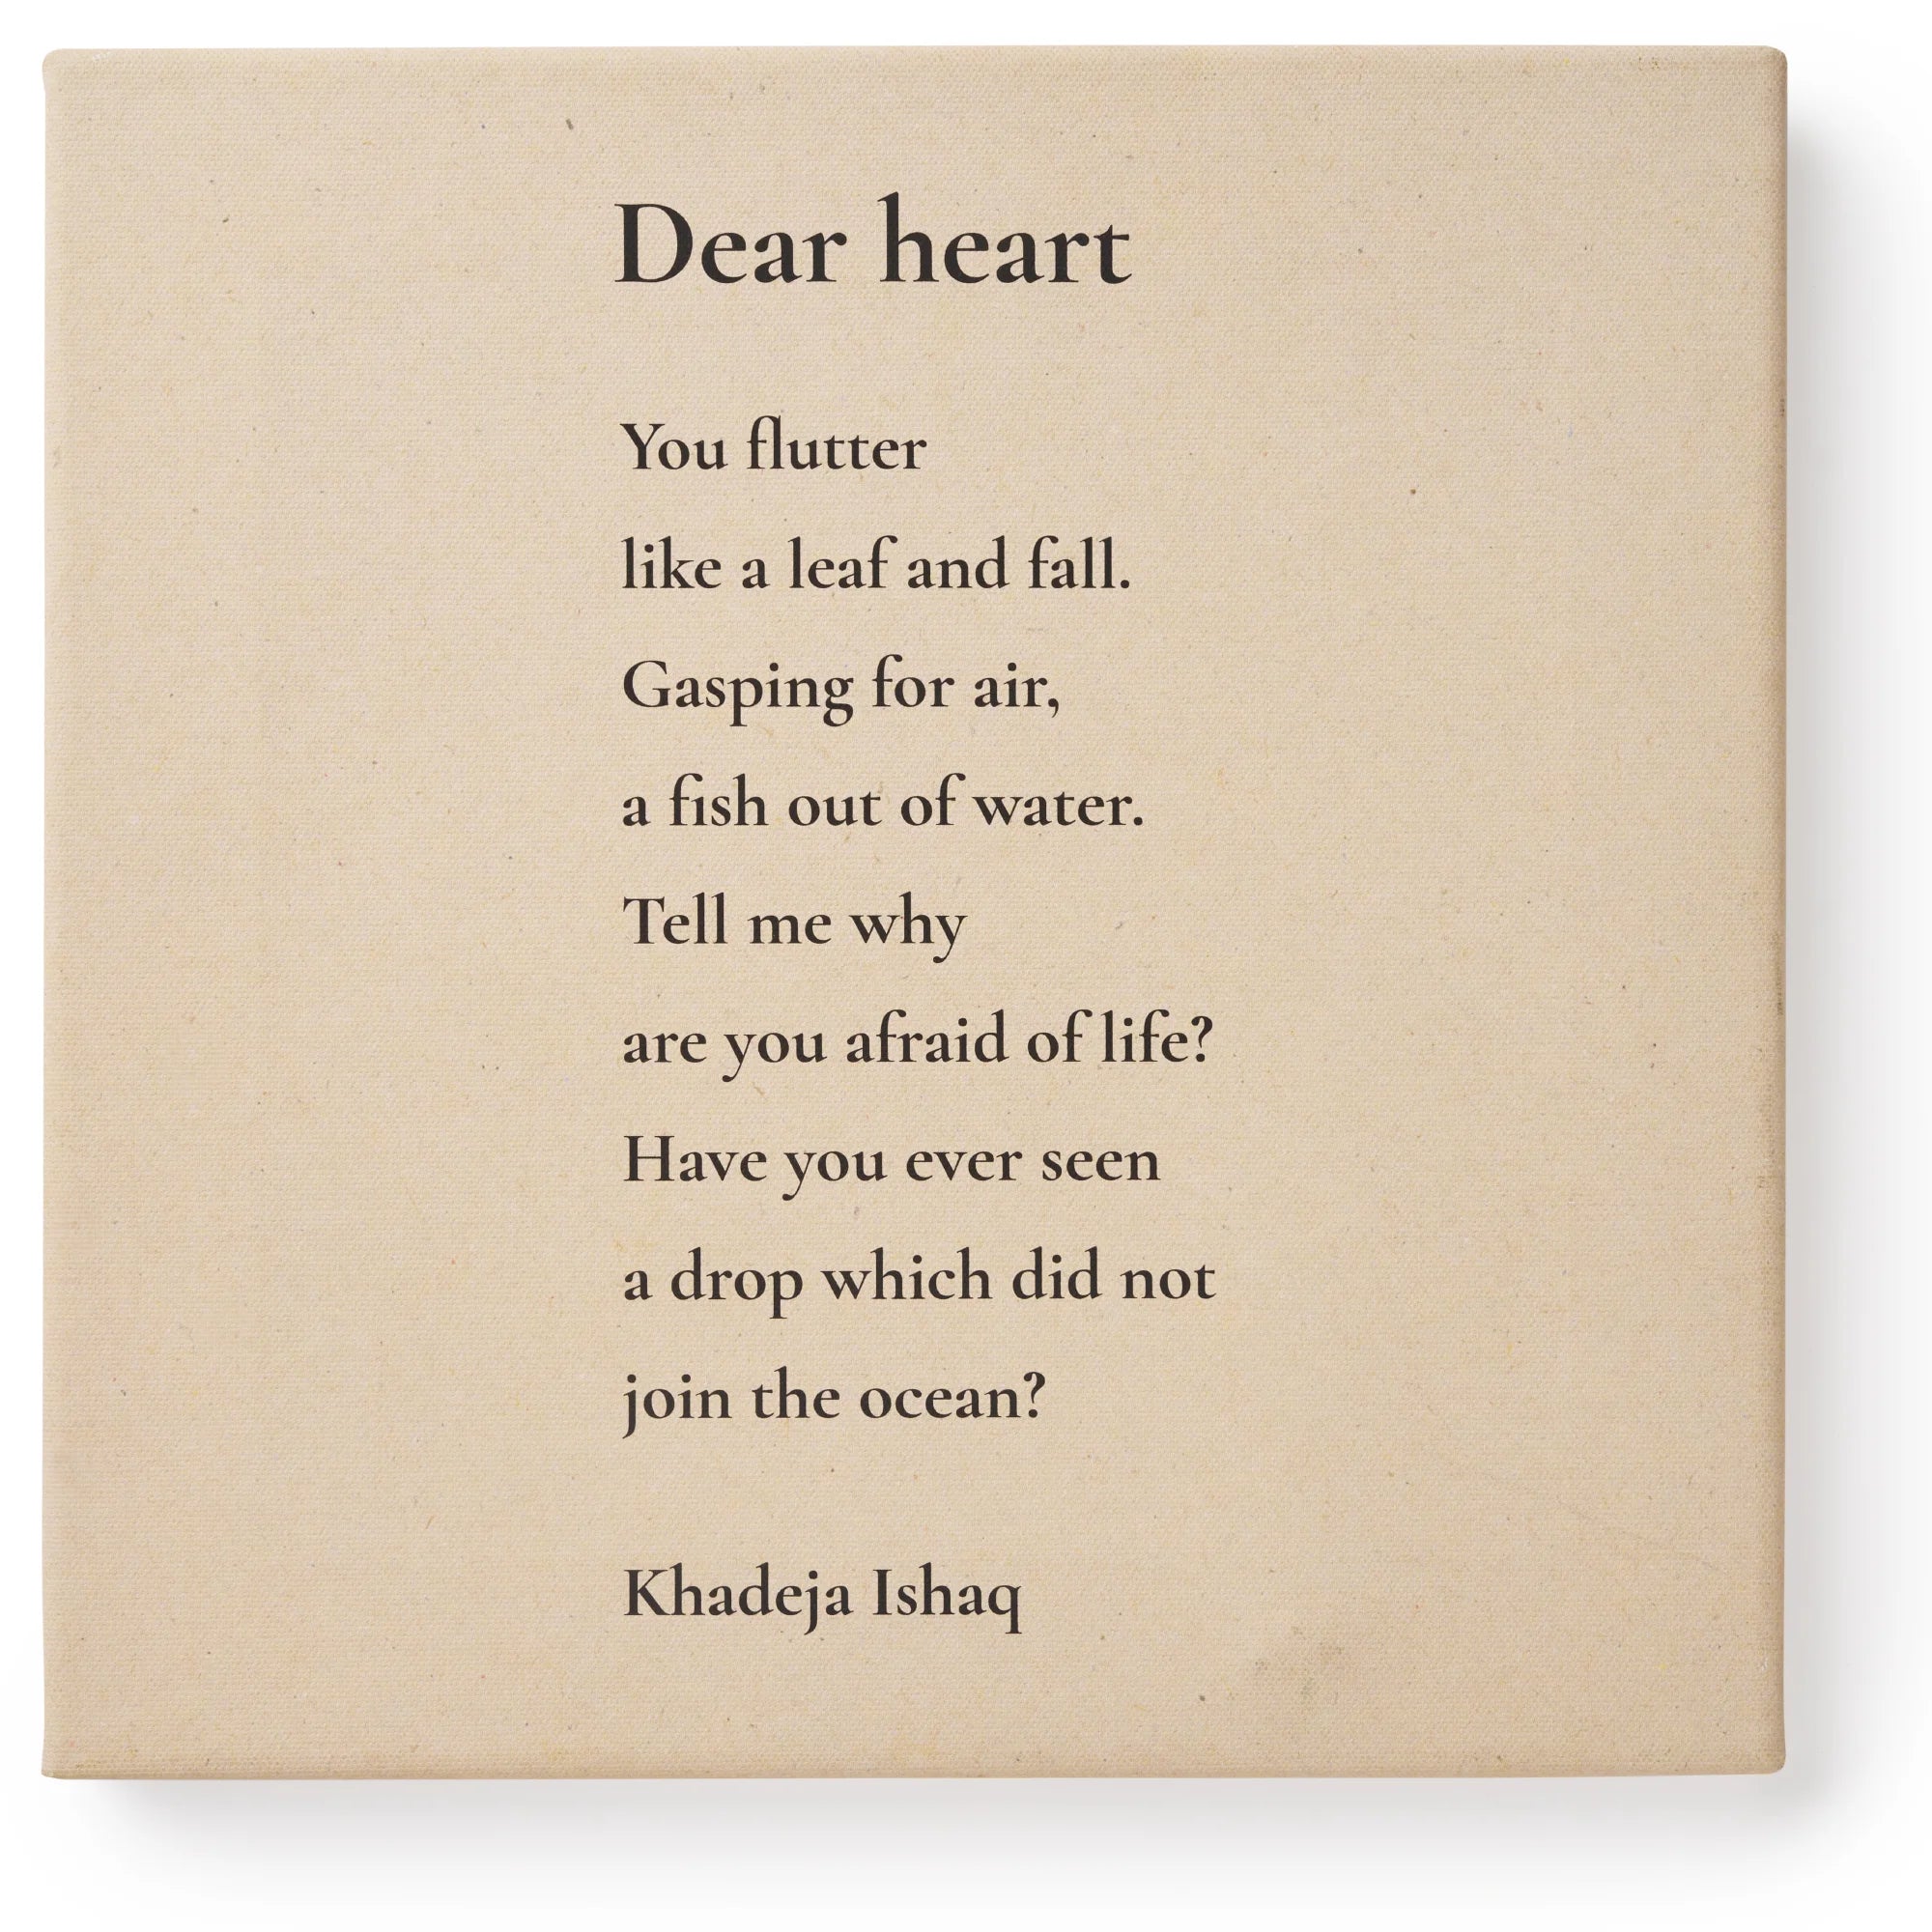 Dear heart
You flutter
like a leaf and fall.
Gasping for air,
a fish out of water.
Tell me why
are you afraid of life?
Have you ever seen
a drop which did not
join the ocean?
Khadeja Ishaq